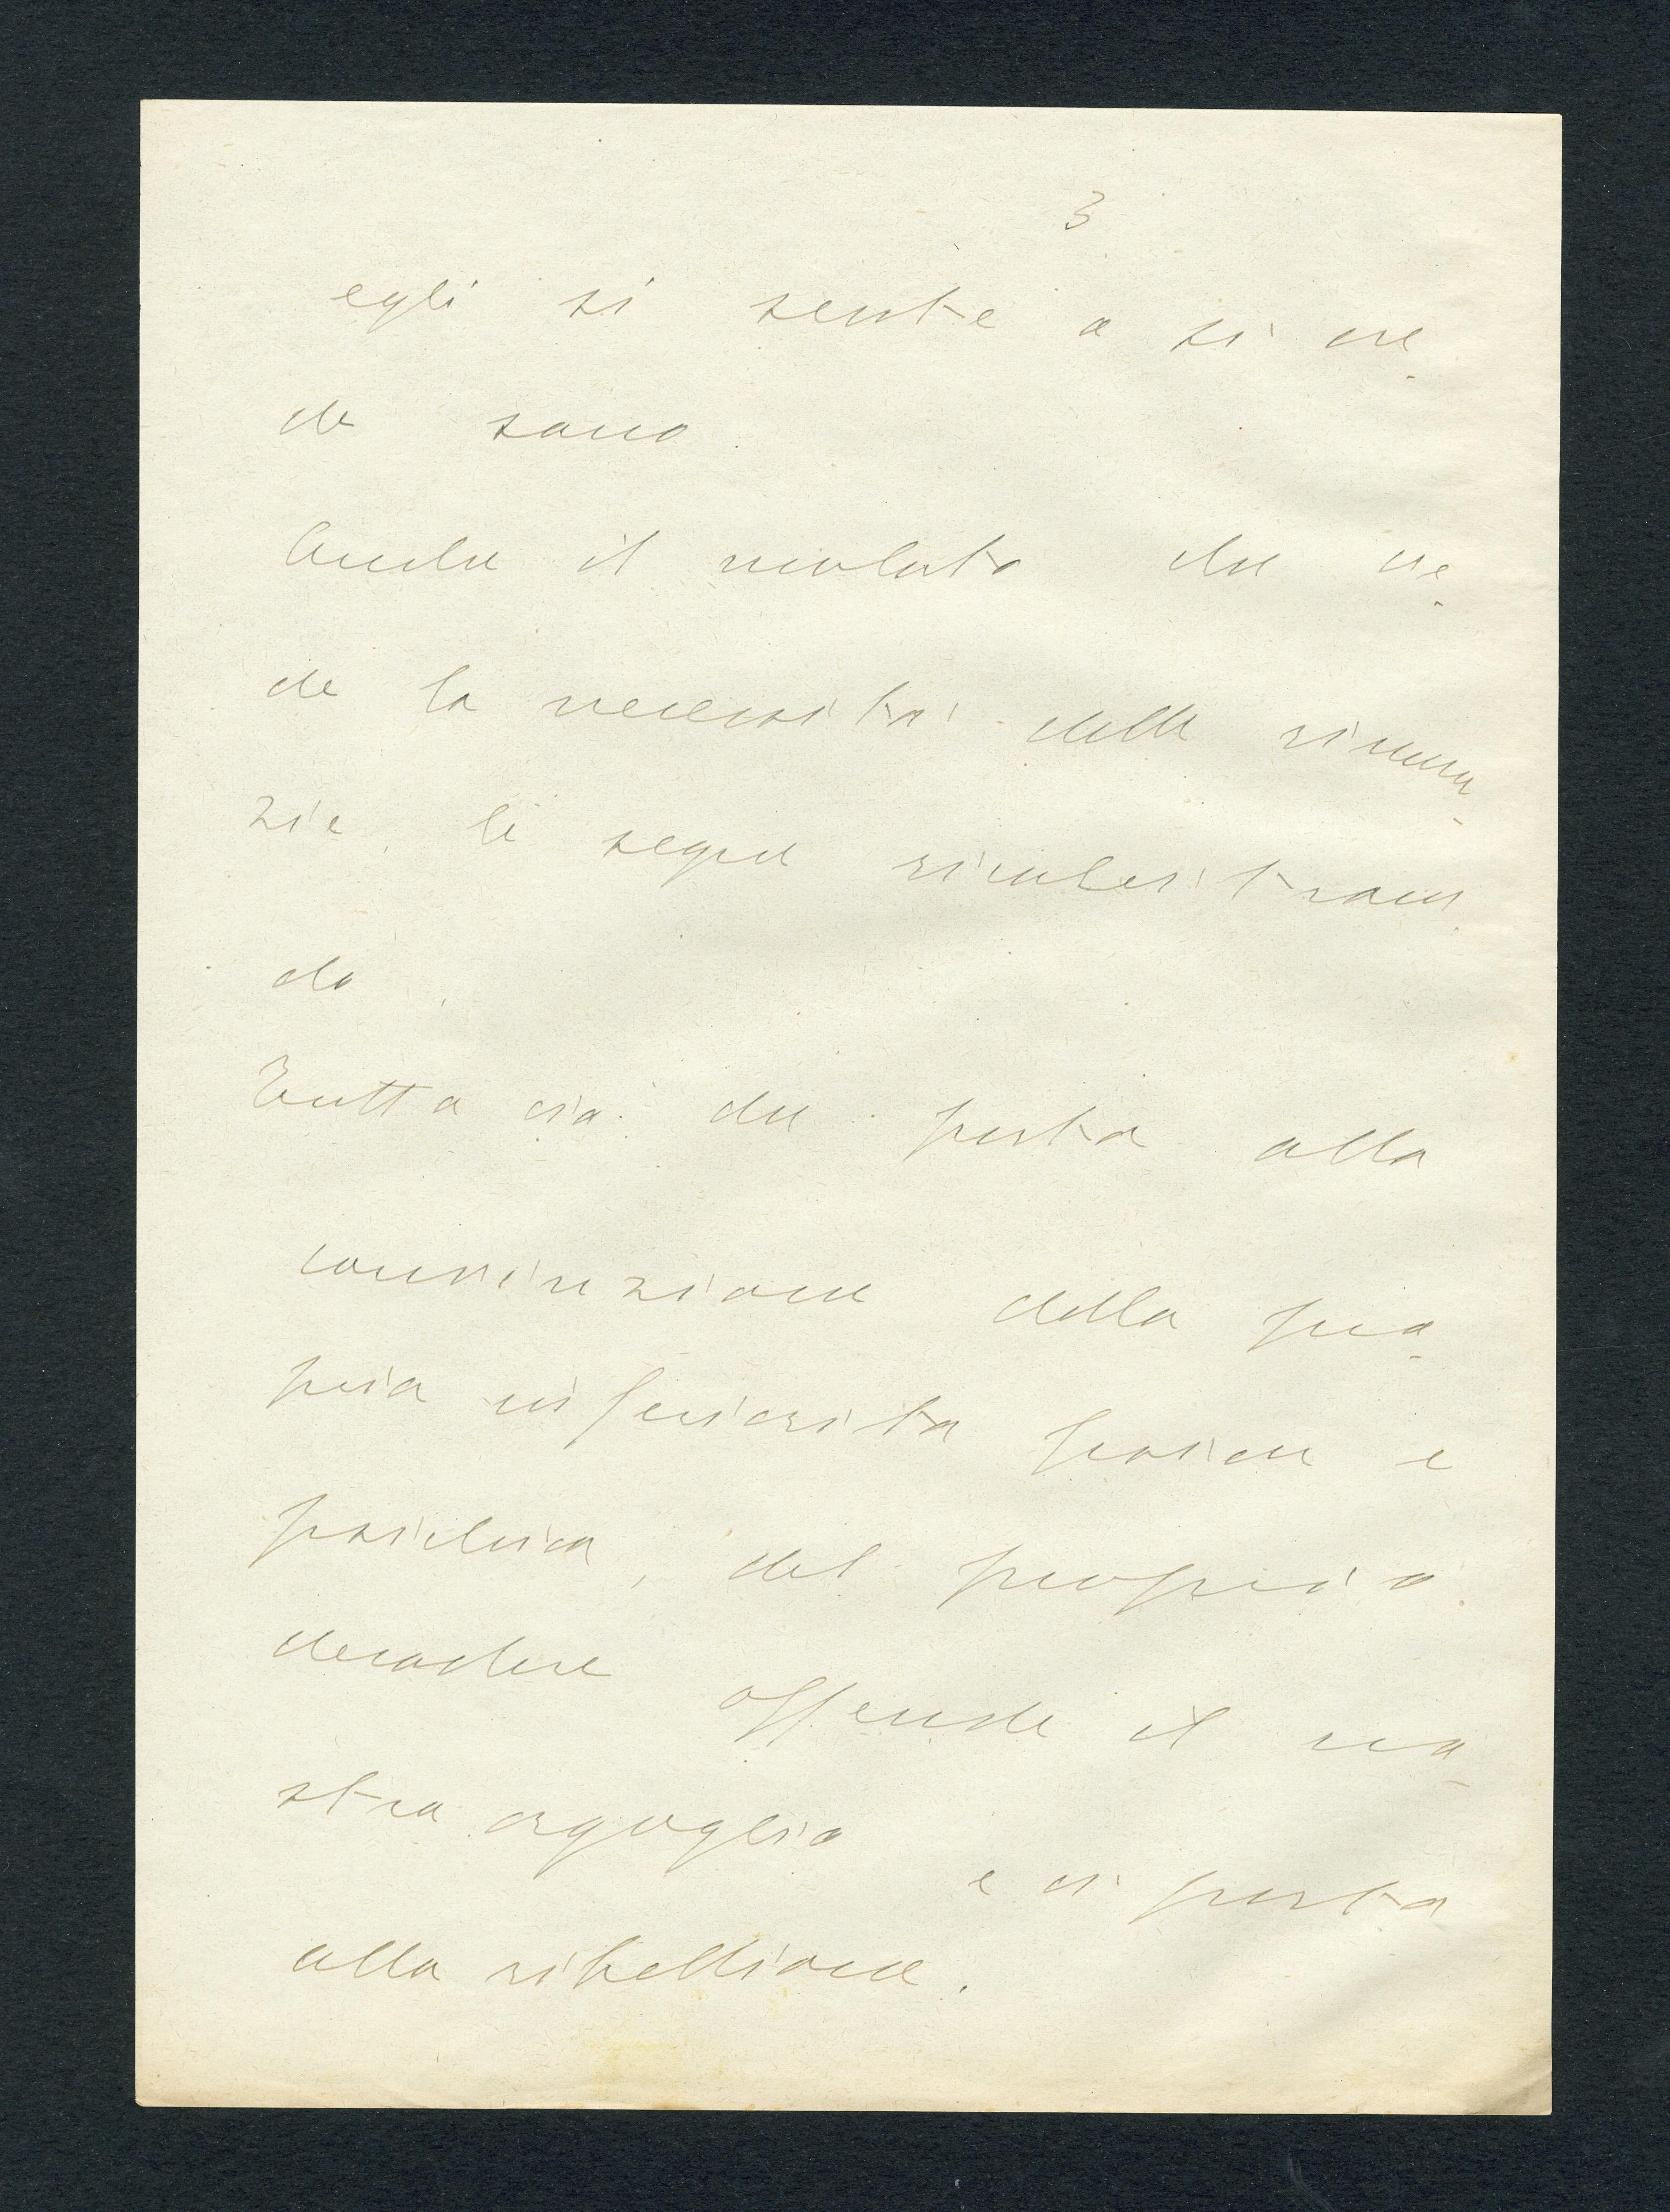 3
egli si sente o si cre-
de sano.
Anche il malato che ve-
de la necessità delle rinun-
zie, le segue recalcitran-
do.
Tutto ciò che porta alla
convinzione della pro-
pria inferiorità fisica e
psichica, del proprio
decadere offende il no-
stro orgoglio e ci porta
alla ribellione.